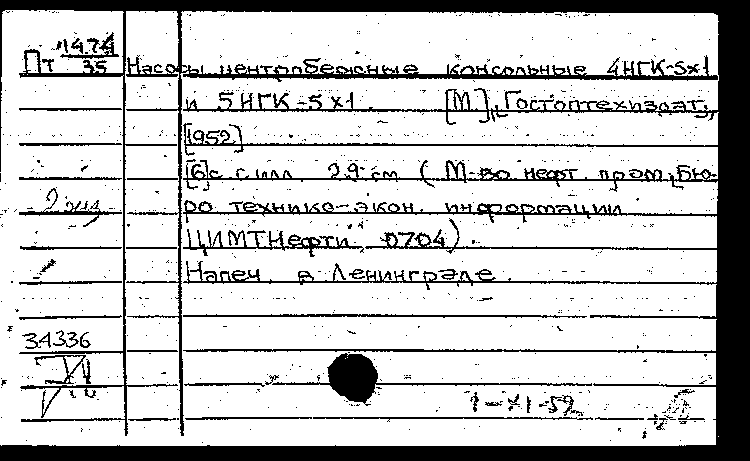 Пт 1474/35 Насосы центробежные консольные 4НГК-5х1
и 5НГК-5х1. [М.], Гостоптехиздат,
[1952]
[6]с. с илл. 29 см. (М-во нефт. пром. Бю-
2 экз. ро технико-экон. информации
ЦИМТНефти. 0704).
Напеч. в Ленинграде.
34336
1-XI-52